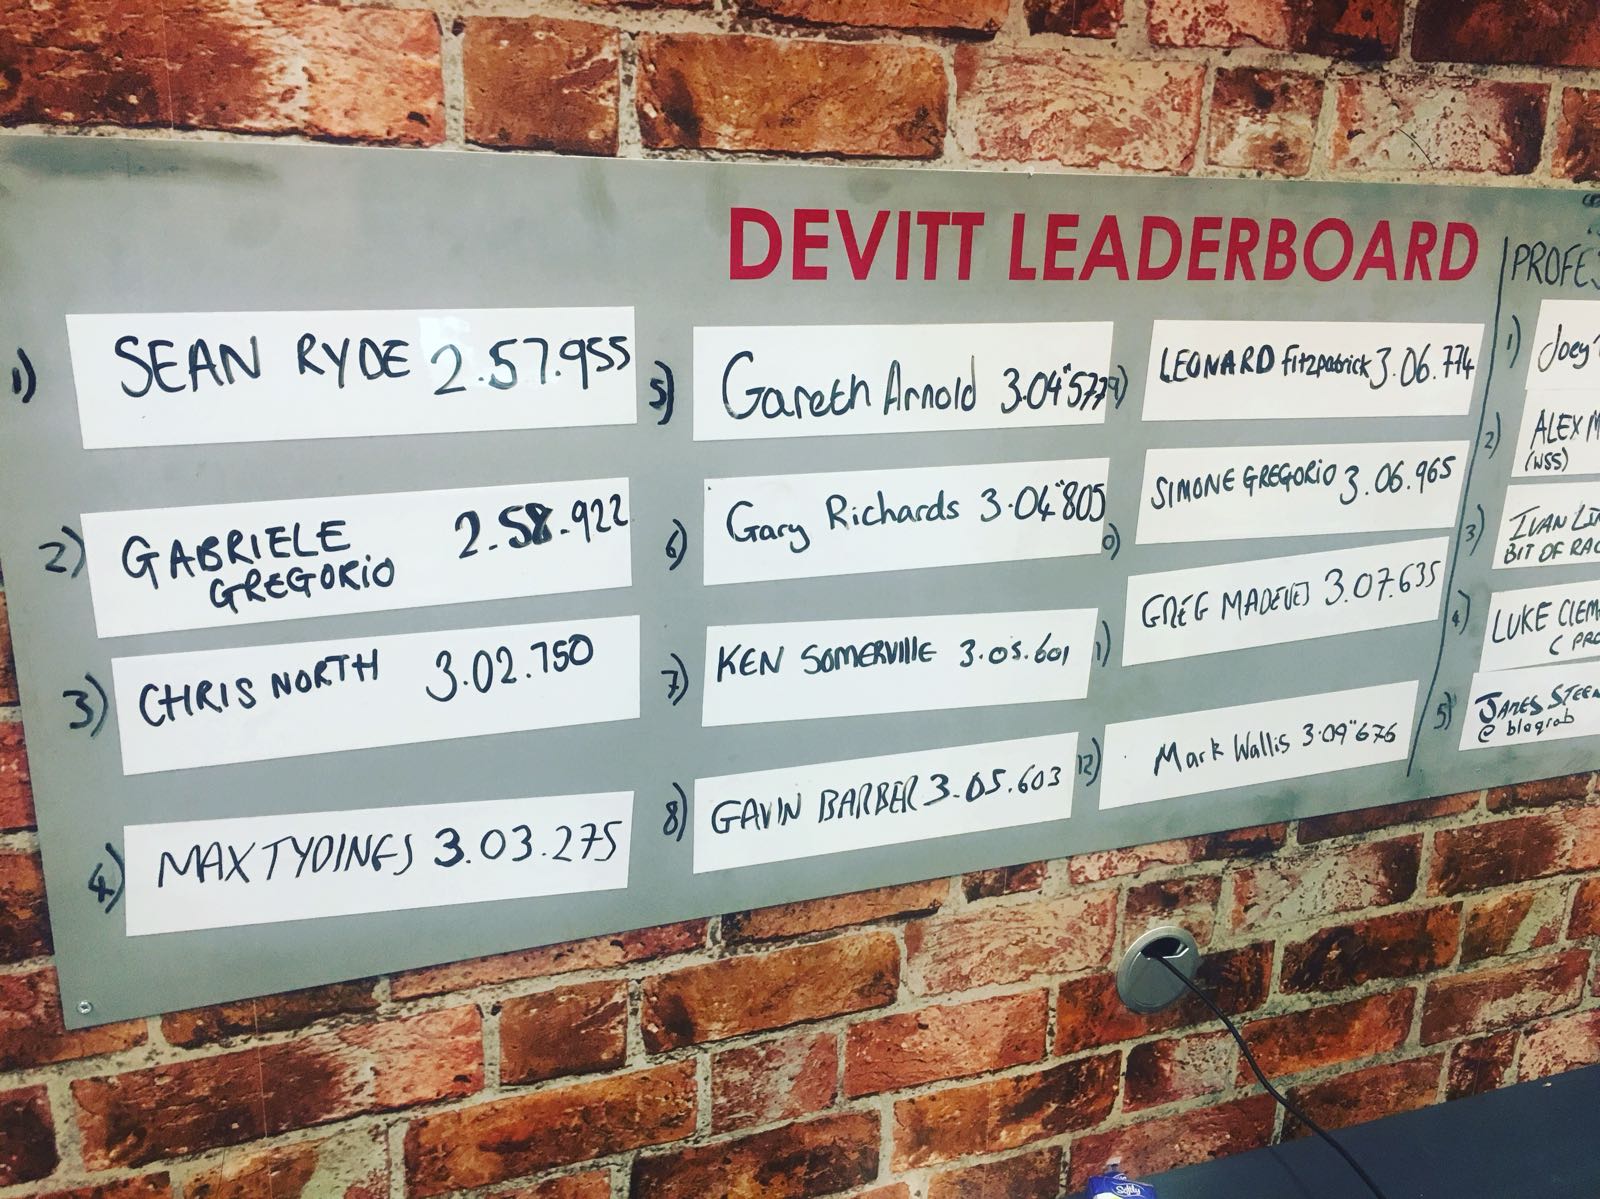 DEVITT LEADERBOARD
1) SEAN RYDE 2.57.955
2) GABRIELE 2.58.922
GREGORIO
3) CHRIS NORTH 3.02.750
4) MAX TYDINGS 3.03.275
5) Gareth Arnold 3.04"577
6) Gary Richards 3.04"805
7) KEN SOMERVILLE 3.05.601
8) GAVIN BARBER 3.05.603
9) LEONARD Fitzpatrick 3.06.774
0) SIMONE GREGORIO 3.06.965
1) GREG MADEVEJ 3.07.635
12) Mark Wallis 3.09"676
PROFES
1) Joey
2) ALEX M
(WSS)
3) IVAN LIN
BIT OF RAC
4) LUKE CLEM
( PRO
5) JAMES STEEN
@ blogrob
Softly